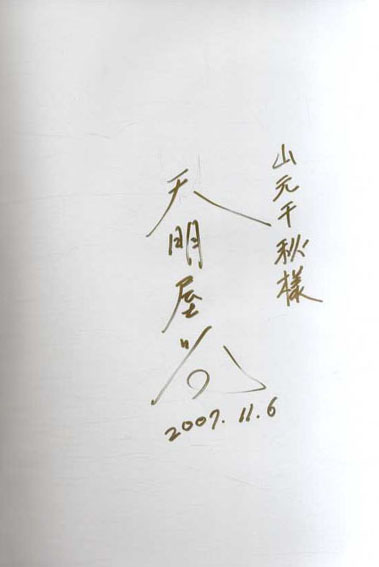 山元千秋様
天明屋尚
2007.11.6